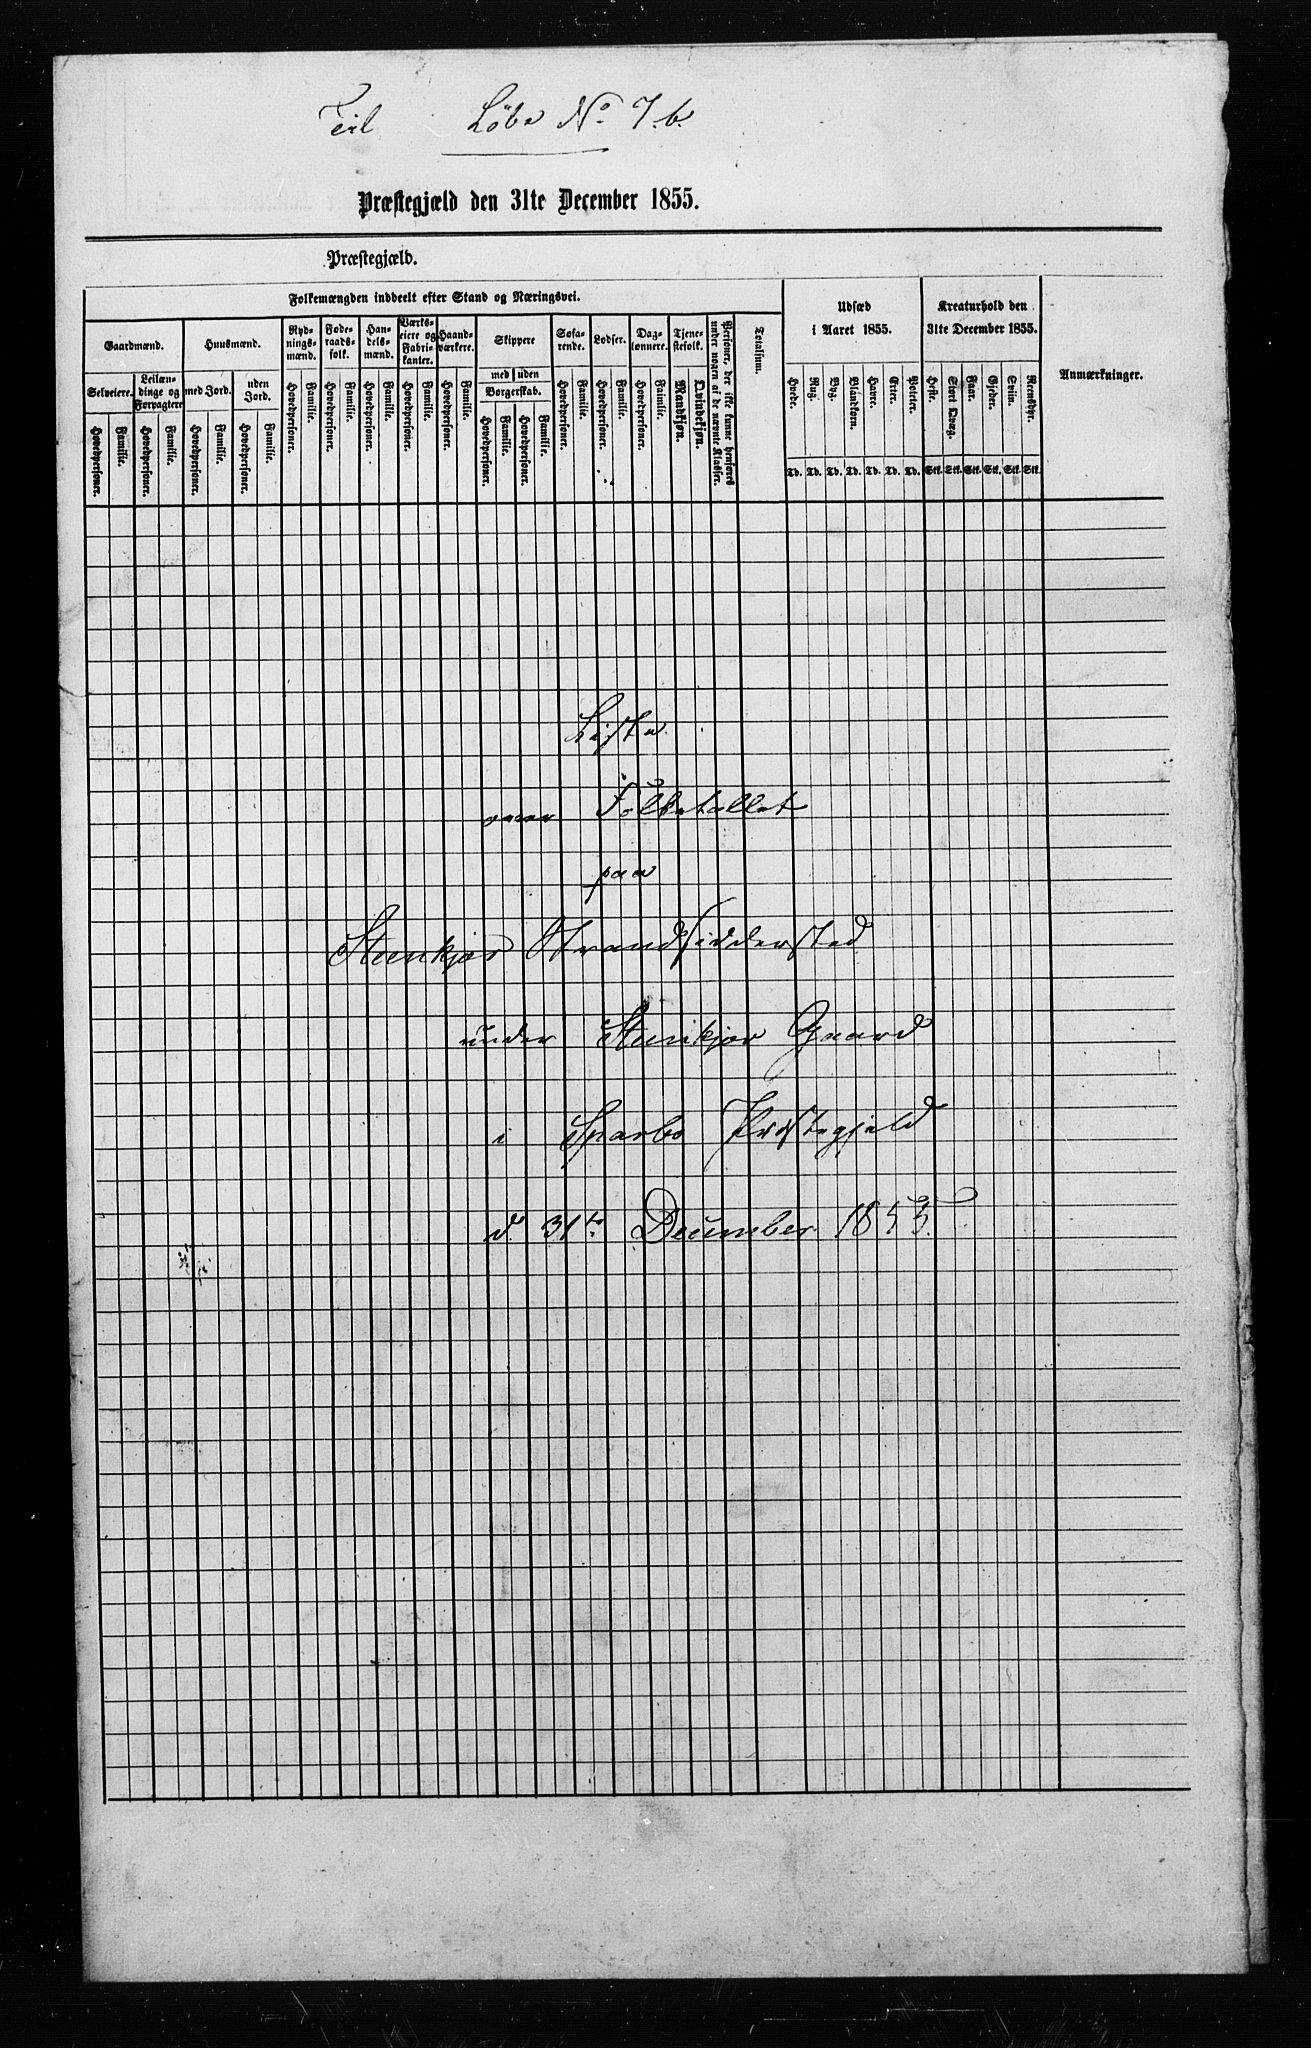 Til Løbe No 7.b.
Præstegjæld den 31te December 1855.
Præstegjæld.
Folkemængden inddeelt efter Stand og Næringsvei.
Udsæd
i Aaret 1855.
Kreaturhold den
31te December 1855.
Anmærkninger.
Gaardmænd.
Huusmænd.
Ryd-
nings-
mænd.
Fode-
raads-
folk.
Han-
dels-
mænd.
Værks-
eiere og
Fabri-
kanter.
Haand-
værkere.
Skippere
Søfa-
rende.
Lodser.
Dag-
lønnere.
Tjene-
stefolk.
Personer, der ikke kunne henføres
under nogen af de nævnte Klasser.
Totalsum.
Selveiere.
Leilæn-
dinge og
Forpagtere
med Jord.
uden
Jord.
med
uden
Borgerskab.
Hovedpersoner.
Familie.
Hovedpersoner.
Familie.
Hovedpersoner.
Familie.
Hovedpersoner.
Familie.
Hovedpersoner.
Familie.
Hovedpersoner.
Familie.
Hovedpersoner.
Familie.
Hovedpersoner.
Familie.
Hovedpersoner.
Familie.
Hovedpersoner.
Familie.
Hovedpersoner.
Familie.
Hovedpersoner.
Familie.
Hovedpersoner.
Familie.
Hovedpersoner.
Familie.
Mandkjøn.
Qvindekjøn.
Hvede.
Rug.
Byg.
Blandkorn.
Havre.
Erter.
Poteter.
Heste.
Stort Qvæg.
Faar.
Gjeder.
Sviin.
Reensdyr.
Td. Td. Td. Td. Td. Td. Td. Stk. Stk. Stk. Stk. Stk. Stk.
Liste
over Folketallet
paa
Steenkjær Strandsiddersted
under Steenkjær Gaard
i Sparbo Præstegjeld
d. 31te December 1855.